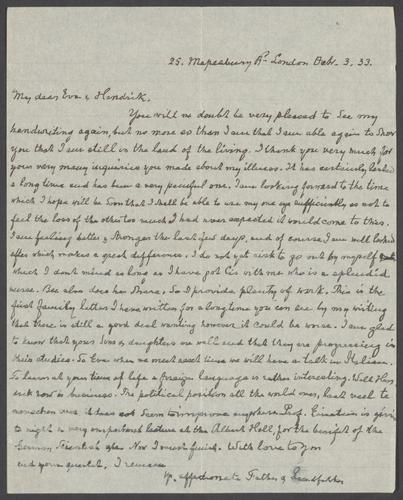 25. Mapesbury Rd London Octbr. 3. 33.
My dear Eva & Hendrick.
You will no doubt be very pleased to see my
handwriting again, but no more so then I am that I am able again to show
you that I am still in the land of the living. I thank you very much for
your very many inquiries you made about my illness. It has certainly lasted
a long time and has been a very painful one. I am looking forward to the time
which I hope will be soon that I shall be able to use my one eye sufficiently as not to
feel the loss of the other too much I had never expected it would come to this.
I am feeling better & stronger the last few days, and of course I am well looked
after which makes a great difference. I do not yet risk to go out by myself
which I don't mind as long as I have got with me who is a splendid
nurse. Bea also does her share. So I provide plenty of work. This is the
first family letter I have written for a long time you can see by my writing
that there is still a good deal wanting however it could be worse. I am glad
to know that your sons & daughters are well and that they are progressing in
their studies. So Eva when we meet next time we will have a talk in Italian.
To learn at your time of life a foreign language is rather interesting. Well Hen-
rick how is business. The political position all the world over, last
Prof. Einstein is giving
to night a very important lecture at the Albert Hall for the benefit of the
German Now I must finish. With love to you
and your I remain
yr. affectionate Father & Grandfather